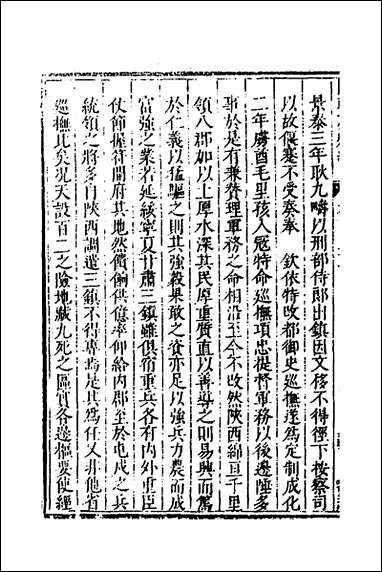 景泰三年耿九疇以刑部侍郎出鎮因文移不得徑下按察司
以故偃蹇不受奏奉　欽依特改都御史巡撫遂為定制成化
二年虜酋毛里孩入冦特命巡撫項忠提督軍務以後邊陲多
事於是有兼賛理軍務之命相沿至今不改然陜西綿亘千里
領八郡加以土厚水深其民厚重質直以善導之則易興而篤
於仁義以猛驅之則其強毅果敢之資亦足以強兵力農而成
富強之業若延綏寧夏甘肅三鎮雖俱宿重兵各有内外重臣
仗節握符開府其地然儲餉供億率仰給内郡至於屯戍之兵
統領之將多自陜西調遣三鎮不得專焉是其為任又非他省
巡撫比矣况天設百二之險地藏九死之區實各邊樞要使經